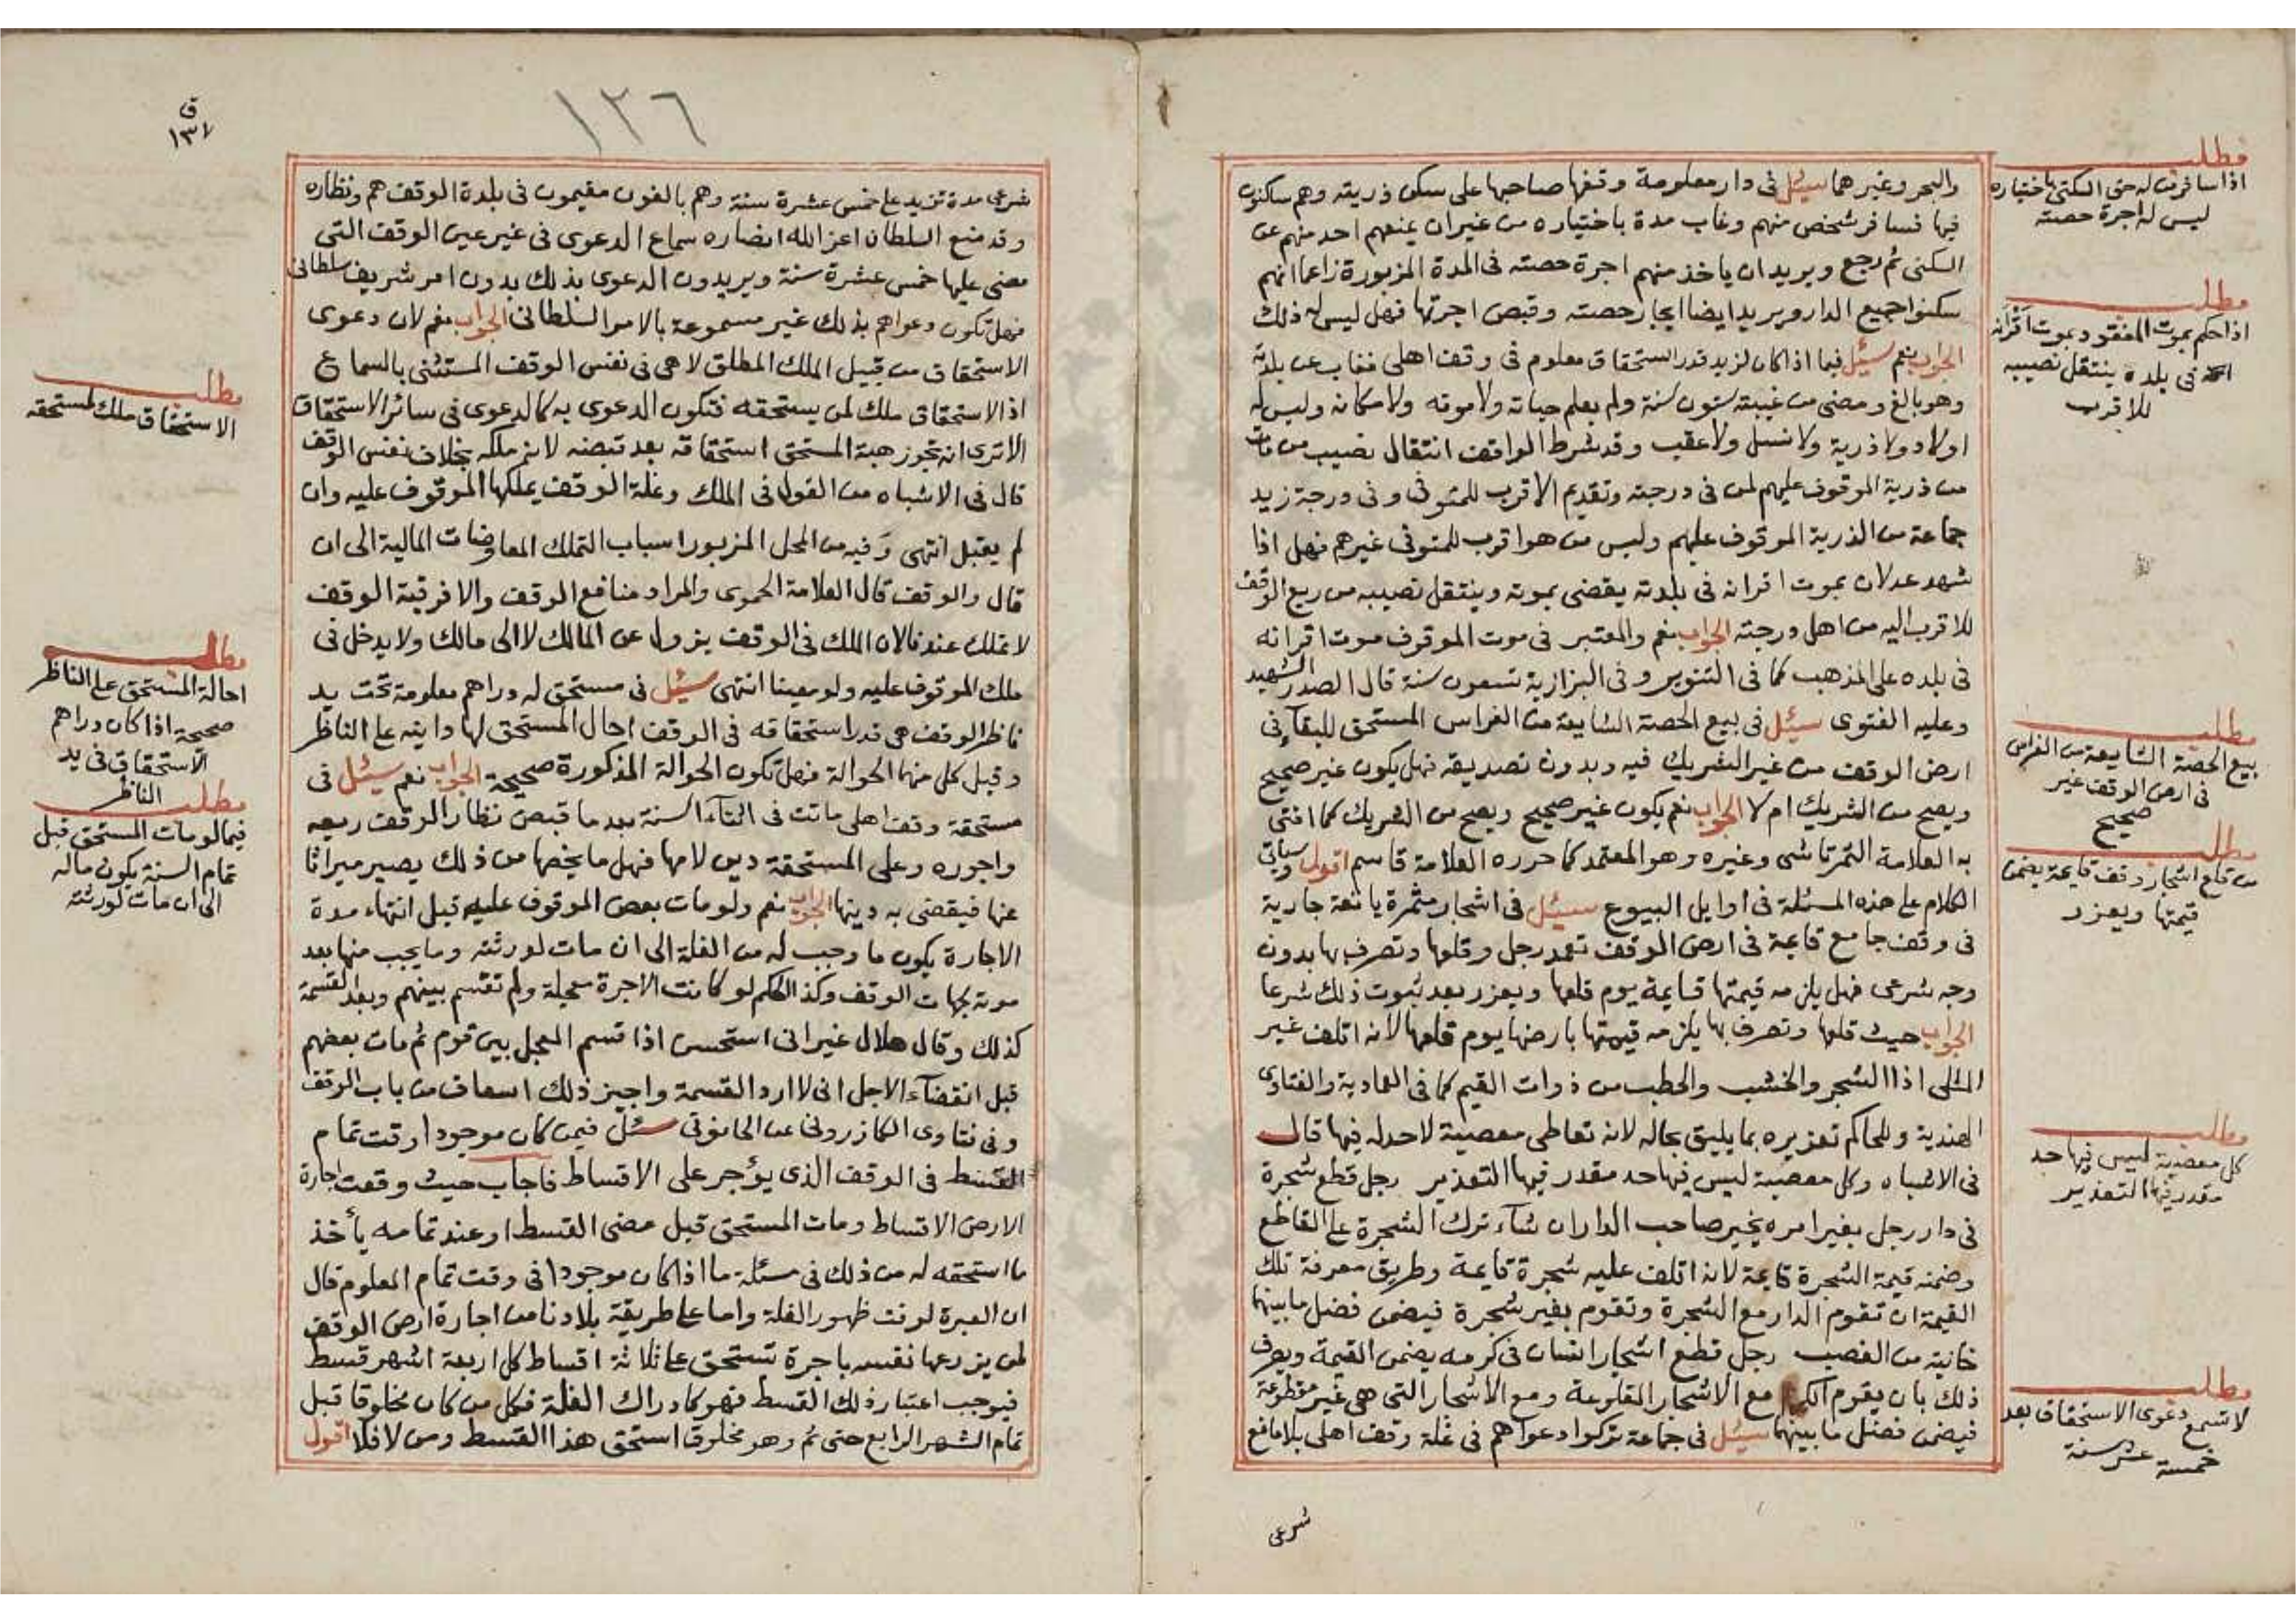 والبحر وغيرهما سئل في دار معلومة وقفها صاحبها على سكن ذريته وهم ساكنون
فيها فسافر شخص منهم وغاب مدة باختياره من غير ان يمنعهم احد منهم عن
السكنى ثم رجع ويريد ان ياخذ منهم اجرة حصته في المدة المزبورة زاعما انهم
سكنوا جميع الدار ويريد ايضا ايجار حصته وقبض اجرتها فهل ليس له ذلك
الجواب نعم سئل فيما اذا كان لزيد قدر استحقاق معلوم في وقف اهلي فغاب عن بلدته
وهو بالغ ومضى من غيبته ستون سنة ولم يعلم حياته ولا موته ولا مكانه وليس له
اولاد ولا ذرية ولا نسل ولا عقب وقد شرط الواقف انتقال نصيب من مات
من ذرية الموقوف عليهم لمن في درجته وتقديم الاقرب للمتوفى وفي درجة زيد
جماعة من الذرية الموقوف عليهم وليس من هو اقرب للمتوفى غيرهم فهل اذا
شهد عدلان بموت اقرانه في بلدته يقضى بموته وينتقل نصيبه من ريع الوقف
للاقرب اليه من اهل درجته الجواب نعم والمعتبر في موت الموقوف موت اقرانه
في بلده على المذهب كما في التنوير وفي البزازية تسعون سنة قال الصدر الشهيد
وعليه الفتوى سئل في بيع الحصة الشايعة من الغراس المستحق للبقآء في
ارض الوقف من غير الشريك فيه وبدون تصديقه فهل يكون غير صحيح
ويصح من الشريك ام لا الجواب نعم يكون غير صحيح ويصح من الشريك كما افتى
به العلامة التمرتاشي وغيره وهو المعتمد كما حرره العلامة قاسم اقول وسياتي
الكلام على هذه المسئلة في اوايل البيوع سئل في اشجار مثمرة يانعة جارية
في وقف جامع قايمة في ارض الوقف تعمد رجل وقلعها وتصرف بها بدون
وجه شرعي فهل يلزمه قيمتها قايمة يوم قلعها ويعزر بعد ثبوت ذلك شرعا
الجواب حيث قلعها وتصرف بها يلزمه قيمتها بارضها يوم قلعها لانه اتلف غير
المثلي اذ الشجر والخشب والحطب من ذوات القيم كما في العمادية والفتاوى
الهندية وللحاكم تعزيره بما يليق بحاله لانه تعاطى معصية لا حد له فيها قال
في الاشباه وكل معصية ليس فيها حد مقدر فيها التعزير رجل قطع شجرة
في دار رجل بغير امره يخير صاحب الدار ان شآء ترك الشجرة على القاطع
وضمنه قيمة الشجرة قايمة لانه اتلف عليه شجرة قايمة وطريق معرفة تلك
القيمة ان تقوم الدار مع الشجرة وتقوم بغير شجرة فيضمن فضل ما بينهما
خانية من الغصب رجل قطع اشجار انسان في كرمه يضمن القيمة ويعرف
ذلك بان يقوم الكرم مع الاشجار المقلوعة ومع الاشجار التي هي غير مقطوعة
فيضمن فضل ما بينهما سئل في جماعة تركوا دعواهم في غلة وقف اهلي بلا مانع
شرعي
مطلب
اذا سافر من له حق السكنى باختياره
ليس له اجرة حصته
مطلب
اذا حكم بموت المفقود بموت اقرانه
في بلده ينتقل نصيبه
للاقرب
مطلب
بيع الحصة الشايعة من الغراس
في ارض الوقف غير
صحيح
مطلب
من قلع اشجار وقف قايمة يضمن
قيمتها ويعزر
مطلب
كل معصية ليس فيها حد
مقدر فيها التعزير
مطلب
لا تسمع دعوى الاستحقاق بعد
خمسة عشر سنة
١٢٦
ق
١٣٧
شرعي مدة تزيد على خمس عشرة سنة وهم بالغون مقيمون في بلدة الوقف هم ونظاره
وقد منع السلطان اعز الله انصاره سماع الدعوى في غير عين الوقف التي
مضى عليها خمس عشرة سنة ويريدون الدعوى بذلك بدون امر شريف سلطاني
فهل تكون دعواهم بذلك غير مسموعة بالامر السلطاني الجواب نعم لان دعوى
الاستحقاق من قبيل الملك المطلق لا هي في نفس الوقف المستثنى بالسماع
اذ الاستحقاق ملك لمن يستحقه فتكون الدعوى به كالدعوى في سائر الاستحقاق
الا ترى انه تجوز هبة المستحق استحقاقه بعد قبضه لانه ملكه بخلاف نفس الوقف
قال في الاشباه من القول في الملك وغلة الوقف يملكها الموقوف عليه وان
لم يقبل انتهى وفيه من المحل المزبور اسباب التملك المعاوضات المالية الى ان
قال والوقف قال العلامة الحموي والمراد منافع الوقف والا فرقبة الوقف
لا تملك عندنا لان الملك في الوقف يزول عن المالك لا الى مالك ولا يدخل في
ملك الموقوف عليه ولو معينا انتهى سئل في مستحق له دراهم معلومة تحت يد
ناظر الوقف هي قدر استحقاقه في الوقف احال المستحق لها داينه على الناظر
وقبل كل منهما الحوالة فهل تكون الحوالة المذكورة صحيحة الجواب نعم سئل في
مستحقة وقف اهلي ماتت في اثنآء السنة بعد ما قبض نظار الوقف ريعه
واجوره وعلى المستحقة دين لامها فهل ما يخصها من ذلك يصير ميراثا
عنها فيقضى به دينها الجواب نعم ولو مات بعض الموقوف عليه قبل انتهاء مدة
الاجارة يكون ما وجب له من الغلة الى ان مات لورثته وما يجب منها بعد
موته لجهات الوقف وكذا الحكم لو كانت الاجرة معجلة ولم تقسم بينهم وبعد القسمة
كذلك وقال هلال غير اني استحسن اذا قسم المعجل بين قوم ثم مات بعضهم
قبل انقضآء الاجل اني لا ارد القسمة واجيز ذلك اسعاف من باب الوقف
وفي فتاوى الكازروني عن الحانوتي سئل فيمن كان موجودا وقت تمام
القسط في الوقف الذي يؤجر على الاقساط فاجاب حيث وقعت اجارة
الارض الاقساط ومات المستحق قبل مضي القسط او عند تمامه يأخذ
ما استحقه له من ذلك في مسئلة ما اذا كان موجودا في وقت تمام المعلوم قال
ان العبرة لوقت ظهور الغلة واما على طريقة بلادنا من اجارة ارض الوقف
لمن يزرعها نفسه باجرة تستحق على ثلاثة اقساط كل اربعة اشهر قسط
فيوجب اعتبار ذلك القسط فهو كادراك الغلة فكل من كان مخلوقا قبل
تمام الشهر الرابع حتى تم وهو مخلوق استحق هذا القسط ومن لا فلا اقول
مطلب
الاستحقاق ملك لمستحقه
مطلب
احالة المستحق على الناظر
صحيحة اذا كان دراهم
الاستحقاق في يد
الناظر
مطلب
فيما لو مات المستحق قبل
تمام السنة يكون ماله
الى ان مات لورثته